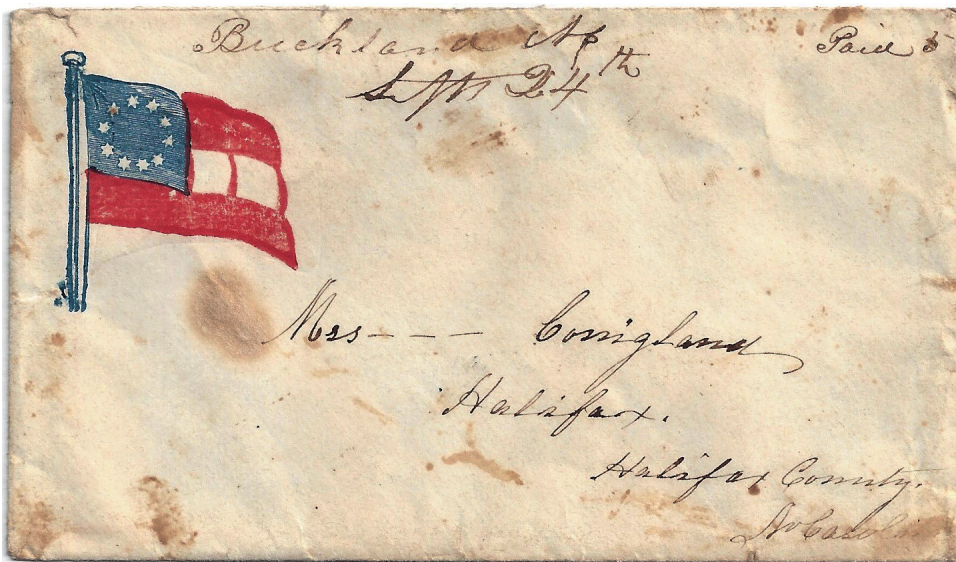 Buckland NC
Paid 5
Sept 24th
Mrs - - - Conigland
Halifax.
Halifax County.
No Carolina